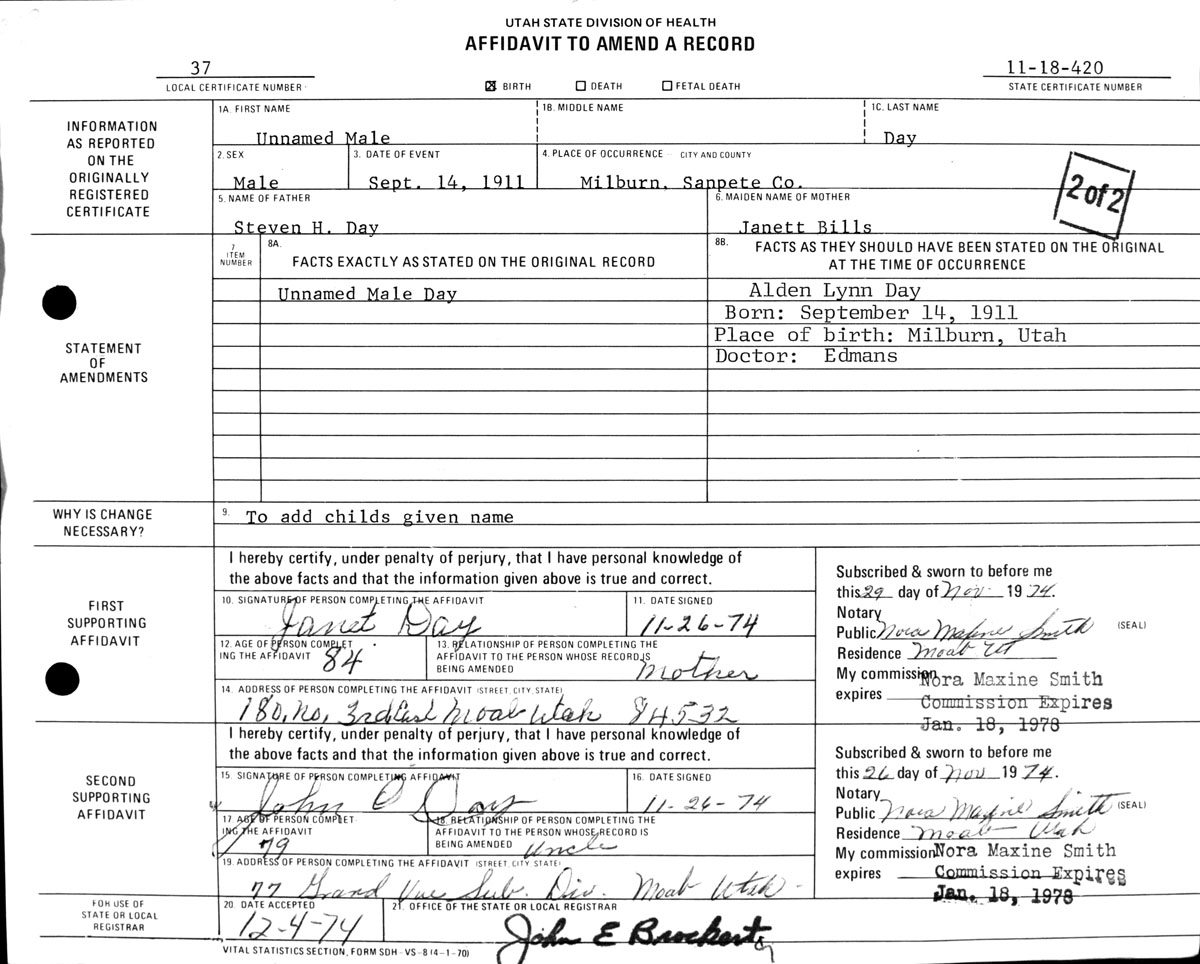 UTAH STATE DIVISION OF HEALTH
AFFIDAVIT TO AMEND A RECORD
37
LOCAL CERTIFICATE NUMBER
☒ BIRTH ☐ DEATH ☐ FETAL DEATH
11-18-420
STATE CERTIFICATE NUMBER
INFORMATION
AS REPORTED
ON THE
ORIGINALLY
REGISTERED
CERTIFICATE
1A. FIRST NAME 1B. MIDDLE NAME 1C. LAST NAME
Unnamed Male Day
2. SEX 3. DATE OF EVENT 4. PLACE OF OCCURRENCE - CITY AND COUNTY
Male Sept. 14, 1911 Milburn, Sanpete Co.
2 of 2
5. NAME OF FATHER 6. MAIDEN NAME OF MOTHER
Steven H. Day Janett Bills
STATEMENT
OF
AMENDMENTS
7
ITEM
NUMBER
8A.
FACTS EXACTLY AS STATED ON THE ORIGINAL RECORD
8B. FACTS AS THEY SHOULD HAVE BEEN STATED ON THE ORIGINAL
AT THE TIME OF OCCURRENCE
Unnamed Male Day Alden Lynn Day
Born: September 14, 1911
Place of birth: Milburn, Utah
Doctor: Edmans
WHY IS CHANGE
NECESSARY?
9. To add childs given name
FIRST
SUPPORTING
AFFIDAVIT
I hereby certify, under penalty of perjury, that I have personal knowledge of
the above facts and that the information given above is true and correct.
10. SIGNATURE OF PERSON COMPLETING THE AFFIDAVIT 11. DATE SIGNED
Janet Day 11-26-74
12. AGE OF PERSON COMPLET
ING THE AFFIDAVIT 84
13. RELATIONSHIP OF PERSON COMPLETING THE
AFFIDAVIT TO THE PERSON WHOSE RECORD IS
BEING AMENDED Mother
14. ADDRESS OF PERSON COMPLETING THE AFFIDAVIT (STREET, CITY, STATE)
180, No, 3rd East Moab Utah 84532
Subscribed & sworn to before me
this 29 day of Nov. 1974.
Notary
Public Nora Maxine Smith (SEAL)
Residence Moab Ut
My commission Nora Maxine Smith
expires Commission Expires
Jan. 18, 1978
SECOND
SUPPORTING
AFFIDAVIT
I hereby certify, under penalty of perjury, that I have personal knowledge of
the above facts and that the information given above is true and correct.
15. SIGNATURE OF PERSON COMPLETING AFFIDAVIT 16. DATE SIGNED
John E Day 11-26-74
17. AGE OF PERSON COMPLET-
ING THE AFFIDAVIT
79
18. RELATIONSHIP OF PERSON COMPLETING THE
AFFIDAVIT TO THE PERSON WHOSE RECORD IS
BEING AMENDED Uncle
19. ADDRESS OF PERSON COMPLETING THE AFFIDAVIT (STREET, CITY, STATE)
77 Grand Vue Sub. Div. Moab Utah -
Subscribed & sworn to before me
this 26 day of Nov 1974.
Notary
Public Nora Maxine Smith (SEAL)
Residence Moab Utah
My commission Nora Maxine Smith
expires Commission Expires
Jan. 18, 1978
FOR USE OF
STATE OR LOCAL
REGISTRAR
20. DATE ACCEPTED 21. OFFICE OF THE STATE OR LOCAL REGISTRAR
12-4-74 John E Brockert
VITAL STATISTICS SECTION, FORM SDH-VS-8 (4-1-70)